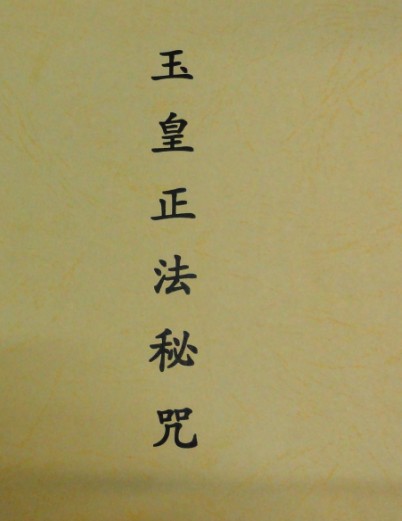 玉皇正法秘咒